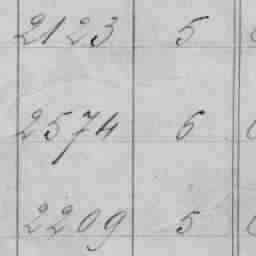 2123 5
2574 6
2209 5